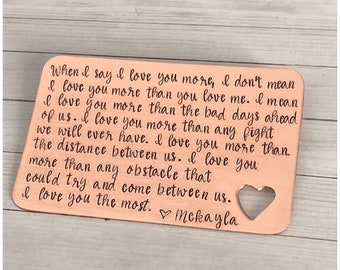 When I say I love you more, I don't mean
I love you more than you love me. I mean
I love you more than the bad days ahead
of us. I love you more than any fight
we will ever have. I love you more than
the distance between us. I love you
more than any obstacle that
could try and come between us.
I love you the most. ♡ Mckayla